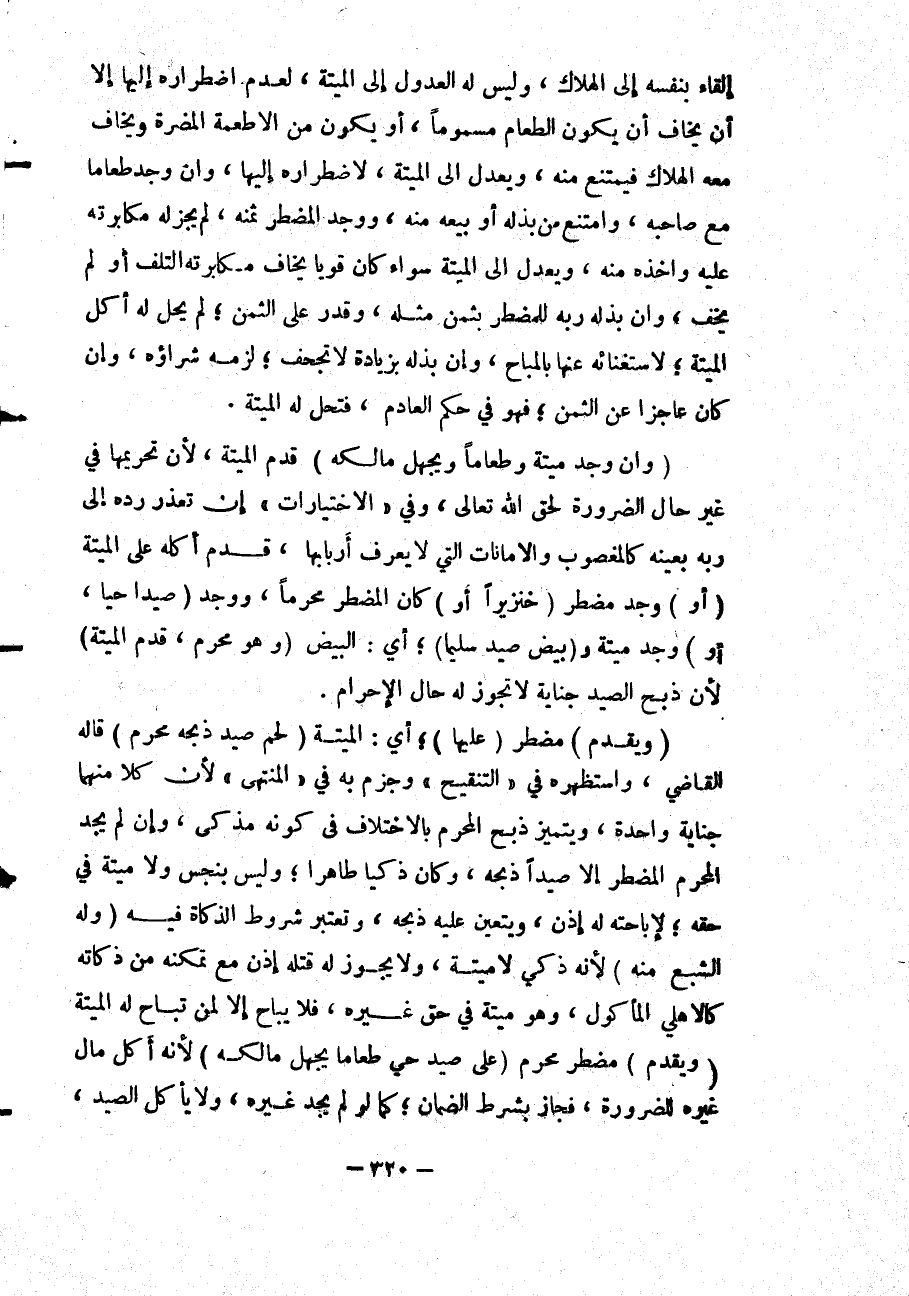 إلقاء بنفسه إلى الهلاك ، وليس له العدول إلى الميتة ، لعدم اضطراره إليها إلا
أن يخاف أن يكون الطعام مسموماً ، أو يكون من الاطعمة المضرة ويخاف
معه الهلاك فيمتنع منه ، ويعدل الى الميتة ، لاضطراره إليها ، وان وجد طعاما
مع صاحبه ، وامتنع من بذله أو بيعه منه ، ووجد المضطر ثمنه ، لم يجز له مكابرته
عليه واخذه منه ، ويعدل الى الميتة سواء كان قويا يخاف من مكابرته التلف أو لم
يخف ، وان بذله ربه للمضطر بثمن مثله ، وقدر على الثمن ؛ لم يحل له أكل
الميتة ؛ لاستغنائه عنها بالمباح ، وإن بذله بزيادة لا تجحف ؛ لزمه شراؤه ، وإن
كان عاجزا عن الثمن ؛ فهو في حكم العادم ، فتحل له الميتة .
( وان وجد ميتة وطعاماً ويجهل مالكه ) قدم الميتة ، لأن تحريمها في
غير حال الضرورة لحق الله تعالى ، وفي « الاختيارات » إن تعذر رده إلى
ربه بعينه كالمغصوب والامانات التي لا يعرف أربابها ، قدم أكله على الميتة
( أو ) وجد مضطر ( خنزيراً أو ) كان المضطر محرماً ، ووجد ( صيدا حيا ،
أو ) وجد ميتة و(بيض صيد سليما) ؛ أي : البيض (وهو محرم ، قدم الميتة)
لأن ذبح الصيد جناية لا تجوز له حال الإحرام .
( ويقدم ) مضطر ( عليها ) ؛ أي : الميتة ( لحم صيد ذبحه محرم ) قاله
القاضي ، واستظهره في « التنقيح » وجزم به في « المنتهى » لأن كلا منهما
جناية واحدة ، ويتميز ذبح المحرم بالاختلاف في كونه مذكى ، وإن لم يجد
المحرم المضطر إلا صيداً ذبحه ، وكان ذكيا طاهرا ؛ وليس بنجس ولا ميتة في
حقه ؛ لإباحته له إذن ، ويتعين عليه ذبحه ، وتعتبر شروط الذكاة فيه ( وله
الشبع منه ) لأنه ذكي لا ميتة ، ولا يجوز له قتله إذن مع تمكنه من ذكاته
كالاهلي المأكول ، وهو ميتة في حق غيره ، فلا يباح إلا لمن تباح له الميتة
( ويقدم ) مضطر محرم (على صيد حي طعاما يجهل مالكه ) لأنه أكل مال
غيره للضرورة ، فجاز بشرط الضمان ؛ كما لو لم يجد غيره ، ولا يأكل الصيد ،
— ٣٢٠ —